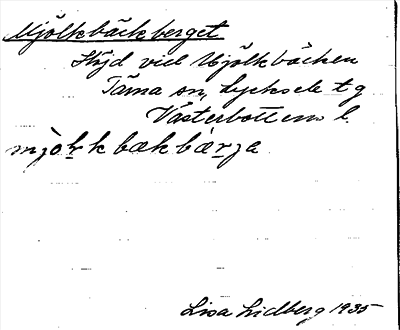 Mjölkbäckberget
Höjd vid Mjölkbäcken
Tärna sn, Lycksele tg
Västerbottens l.
mjòrk bæk bærja
Lisa Lidberg 1935